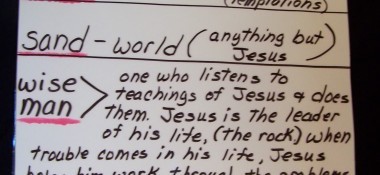 (Temptations)
sand - world (anything but
Jesus)
wise one who listens to
man > teachings of Jesus & does
them. Jesus is the leader
of his life, (the rock) when
trouble comes in his life, Jesus
helps him work through the problems